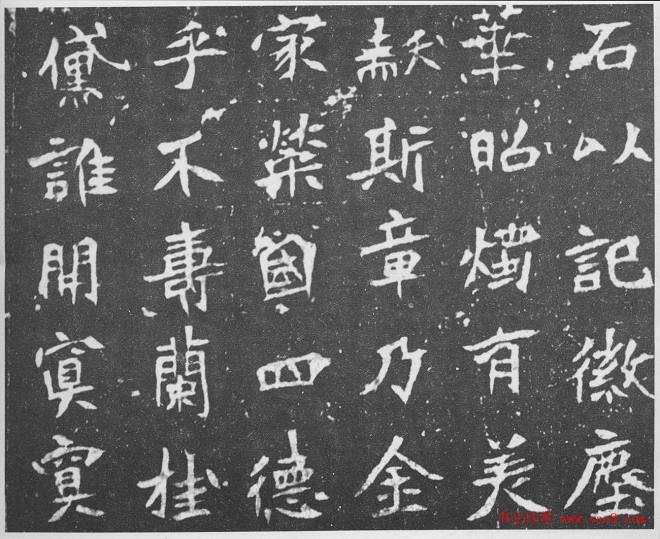 石以記徽塵
華昭燭有美
斯章乃金
家榮國四德
乎不壽蘭桂
儻誰開寞寞